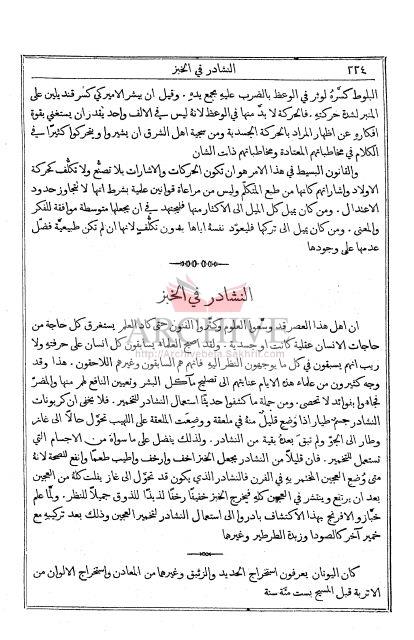 ٢٢٤
النشادر في الخبز
البلوط كسَّرهُ لوثر في الوعظ بالضرب عليهِ بجمع يدهِ. وقيل ان بيشر الاميركي كسر قنديلين على
المنبر لشدة حركتهِ. فالحركة لا بدَّ منها في الوعظ لانهُ ليس في الالف واحد يقدر ان يستغني بقوة
افكارهِ عن اظهار المراد بالحركة الجسدية ومن سجية اهل الشرق ان يشيروا ويتحركوا كثيرًا في
الكلام في مخاطباتهم المعتادة ومخاطباتهم ذات الشان
والقانون البسيط في هذا الامر هو ان تكون الحركات والاشارات بلا تصنُّع ولا تكلُّف كحركة
الاولاد واشاراتهم كانها من طبع المتكلّم وليس من مراعاة قوانين علمية بشرط انها لا تتجاوز حدود
الاعتدال. ومن كان يميل كل الميل الى الاكثار منها فليجتهد في ان يجعلها متوسطة موافقة للفكر
والمعنى. ومن كان يميل الى تركها فليعوّد نفسهُ اياها بدون تكلُّف لانها ان لم تكن طبيعيَّة فضّل
عدمها على وجودها
النشادر في الخبز
ان اهل هذا العصر قد وسَّعوا العلوم وكثَّروا الفنون حتى كاد العلم يستغرق كل حاجة من
حاجات الانسان عقلية كانت او جسدية. ولقد اصبح العلماء يسابقون كل انسان على حرفتهِ ولا
ريب انهم يسبقون في كل ما يوجهون النظر اليهِ فانهم هم السابقون وغيرهم اللاحقون. هذا وقد
وجه كثيرون من علماء هذه الايام عنايتهم الى تصليح مآكل البشر وتعيين النافع لهم منها والمضرّ
فجاءُوا بفوائد لا تحصى. ومن جملة ما كشفوا حديثًا استعمال النشادر للتخمير. فلا يخفى ان كربونات
النشادر جسم طيار اذا وُضع قليلٌ منهُ في ملعقة ووضعت الملعقة على اللهيب تحوَّل حالًا الى غاز
وطار الى الجوّ ولم تبقَ بعدهُ بقية من النشادر. ولذلك يفضل على ما سواهُ من الاجسام التي
تستعمل للتخمير. فان قليلًا من النشادر يجعل الخبز اخف وارخف واطيب طعمًا وانفع للصحة لانهُ
متى وُضع العجين المختمر بهِ في الفرن فالنشادر الذي يكون قد تحوّل الى غاز يفلت كلهُ من العجين
بعد ان يرتفع وينتشر في العجين كلهِ فيخرج الخبز خفيفًا رخفًا لذيذًا للذوق جميلًا للنظر. ولما علم
خبَّازو الافرنج بهذا الاكتشاف بادروا الى استعمال النشادر لتخمير العجين وذلك بعد تركيبهِ مع
خمير آخر كالصودا وزبدة الطرطير وغيرها
كان اليونان يعرفون استخراج الحديد والزئبق وغيرها من المعادن واستخراج الالوان من
الاتربة قبل المسيح بست مئة سنة
ARCHIVE
http://Archivebeta.Sakhrit.com